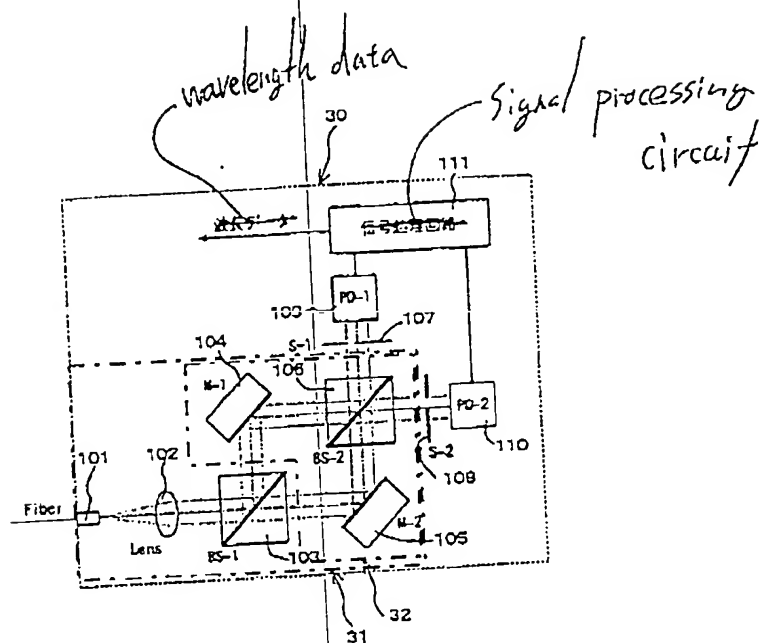 wavelength data
signal processing
circuit
30
111
波長データ
信号処理回路
PD-1
107
S-1
104
M-1
106
PD-2
110
S-2
BS-2
101
102
Fiber
Lens
BS-1
103
M-2
105
32
31